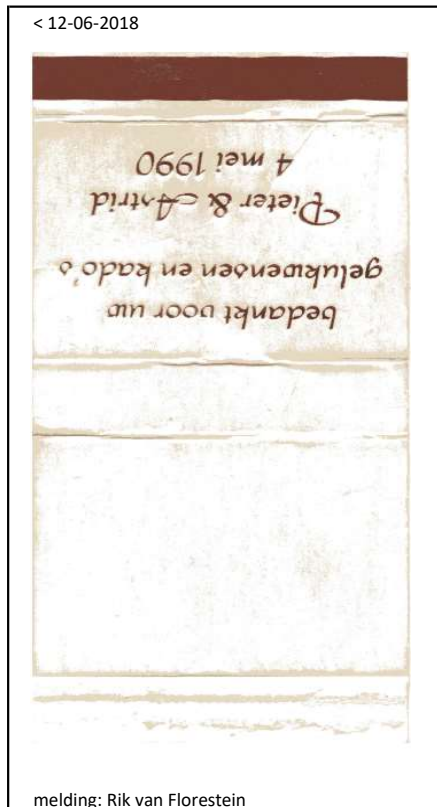 < 12-06-2018
bedankt voor uw
gelukwensen en kado's
Pieter & Astrid
4 mei 1990
melding: Rik van Florestein